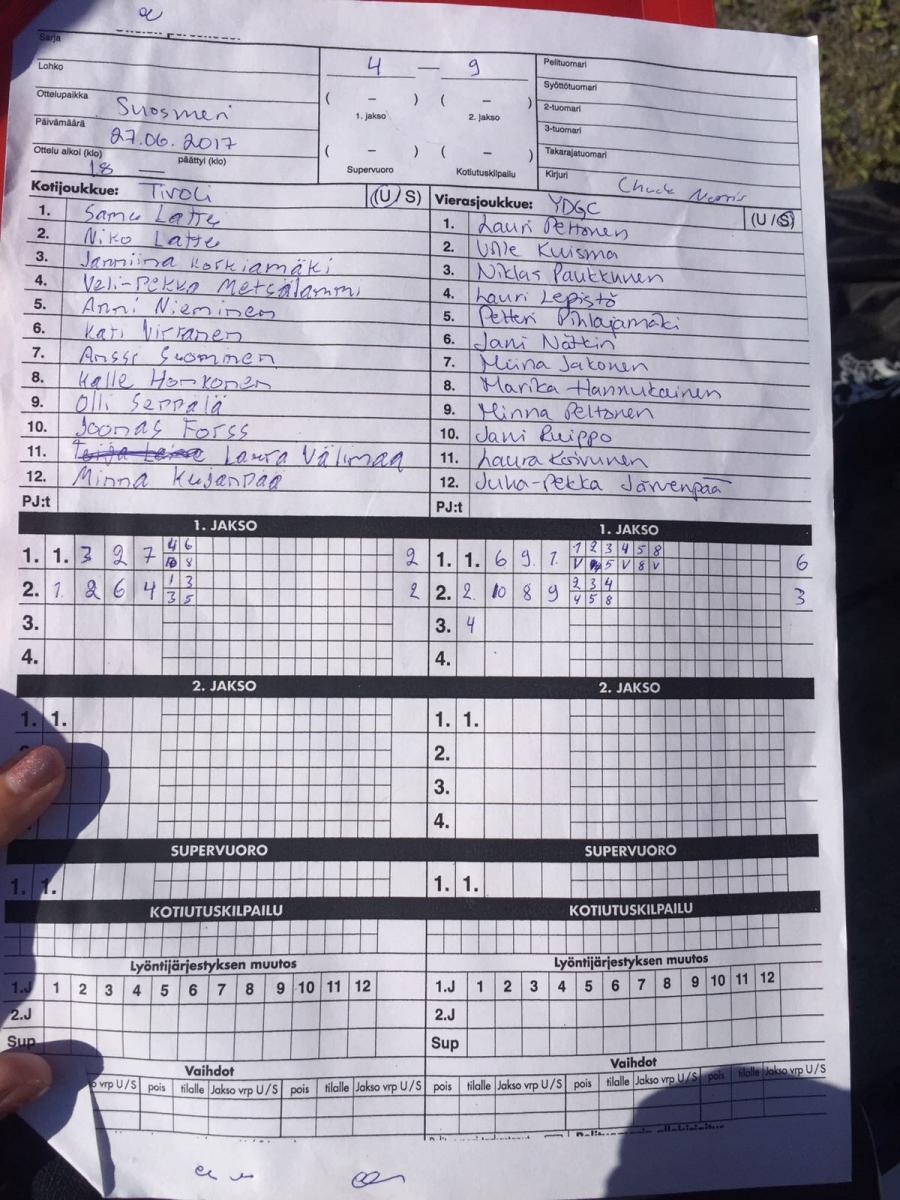 Sarja
Lohko
Ottelupaikka Suosmeri
Päivämäärä 27.06.2017
Ottelu alkoi (klo) 18 päättyi (klo) —
4 — 9
( – ) ( – )
1. jakso 2. jakso
( – ) ( – )
Supervuoro Kotiutuskilpailu
Pelituomari
Syöttötuomari
2-tuomari
3-tuomari
Takarajatuomari
Kirjuri Chuck Norris
Kotijoukkue: Tivoli (U/S)
1. Samu Latte
2. Niko Latte
3. Janniina Korkiamäki
4. Veli-Pekka Metsälammi
5. Anni Nieminen
6. Kati Virtanen
7. Anssi Suominen
8. Kalle Honkonen
9. Olli Seppälä
10. Joonas Forss
11. Laura Välimaa
12. Minna Kujanpää
PJ:t
Vierasjoukkue: YDGC (U/S)
1. Lauri Peltonen
2. Ville Kuisma
3. Niklas Paukkunen
4. Lauri Lepistö
5. Petteri Pihlajamäki
6. Jani Nätkin
7. Miina Jakonen
8. Marika Hannukainen
9. Minna Peltonen
10. Jani Ruippo
11. Laura Koivunen
12. Juha-Pekka Järvenpää
PJ:t
1. JAKSO
1. 1. 3 2 7 4 6 2
8
2. 1. 2 6 4 1 3 2
3 5
3.
4.
1. JAKSO
1. 1. 6 9 1. 1 2 3 4 5 8 6
V 5 V 8 V
2. 2. 10 8 9 2 3 4 3
4 5 8
3. 4
4.
2. JAKSO
1. 1.
2. JAKSO
1. 1.
2.
3.
4.
SUPERVUORO
1. 1.
SUPERVUORO
1. 1.
KOTIUTUSKILPAILU
KOTIUTUSKILPAILU
Lyöntijärjestyksen muutos
1.J 1 2 3 4 5 6 7 8 9 10 11 12
2.J
Sup
Lyöntijärjestyksen muutos
1.J 1 2 3 4 5 6 7 8 9 10 11 12
2.J
Sup
Vaihdot
vrp U/S pois tilalle Jakso vrp U/S pois tilalle Jakso vrp U/S
Vaihdot
pois tilalle Jakso vrp U/S pois tilalle Jakso vrp U/S pois tilalle Jakso vrp U/S